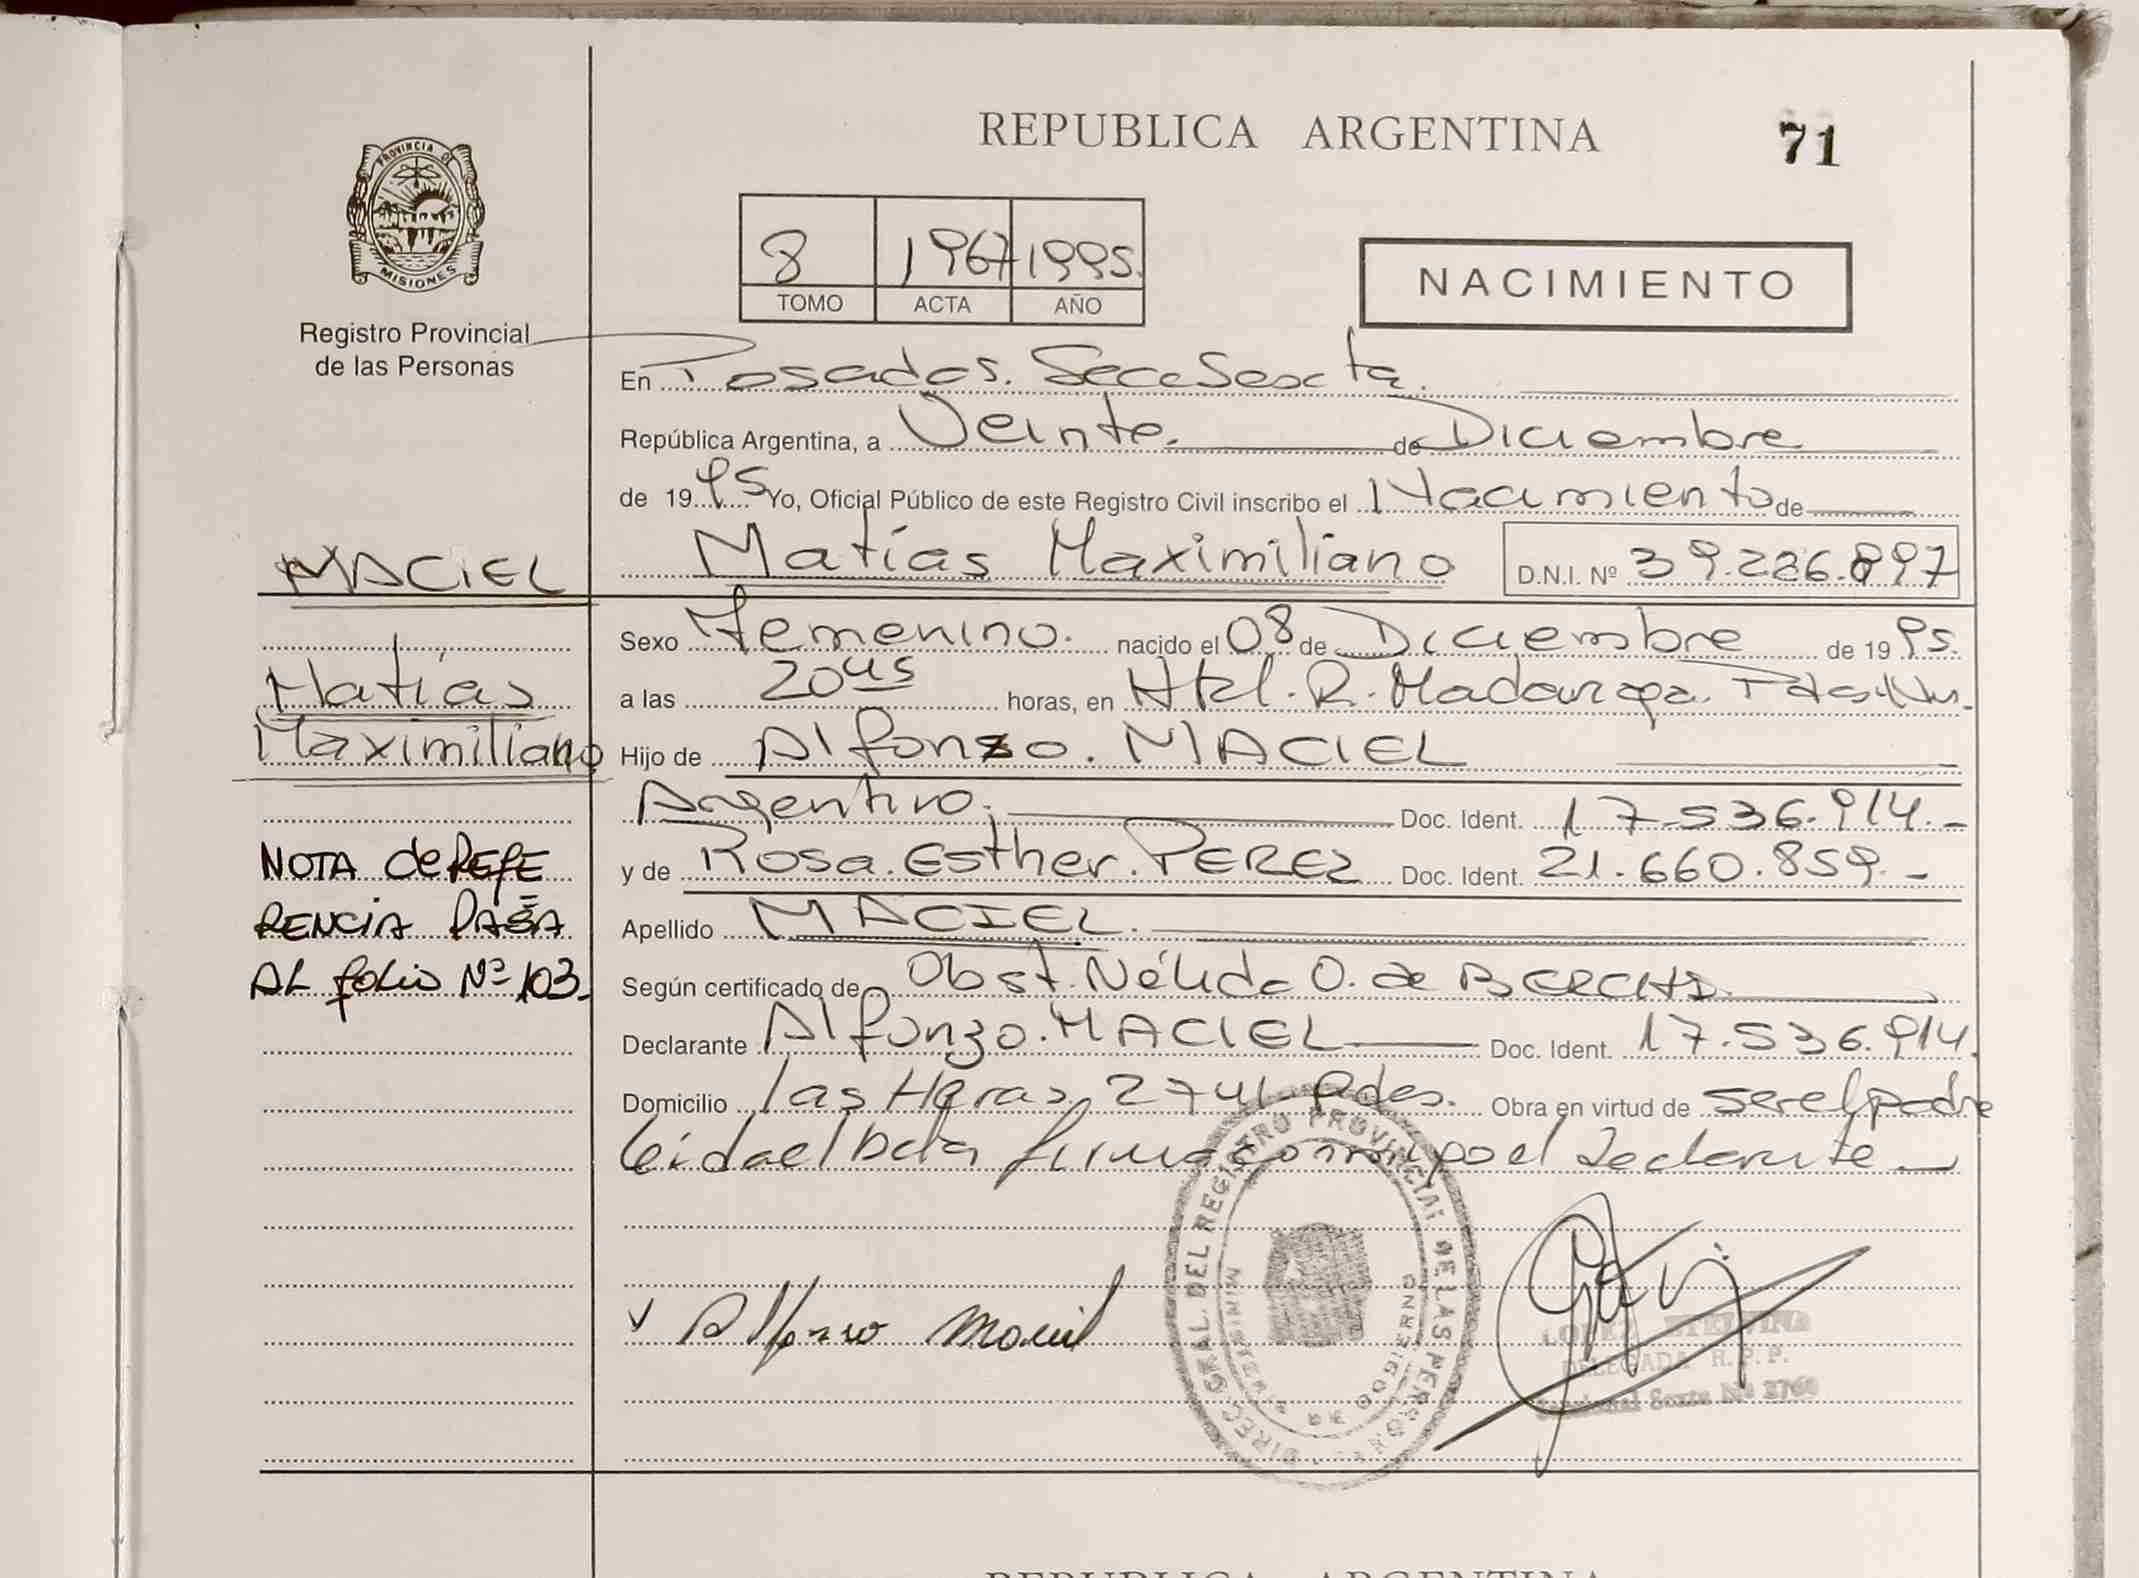 REPUBLICA ARGENTINA
71
PROVINCIA D
MISIONES
Registro Provincial
de las Personas
8 1967 1995.
TOMO ACTA AÑO
NACIMIENTO
En Posadas. Secc Sexta.
República Argentina, a Veinte. de Diciembre
de 19 95 Yo, Oficial Público de este Registro Civil inscribo el Nacimiento de
Matías Maximiliano D.N.I. Nº 39.226.897
MACIEL
Sexo Femenino. nacido el 08 de Diciembre de 19 95.
a las 20 horas, en Htal. R. Madariaga.
Matías
Maximiliano
Hijo de Alfonzo. MACIEL
Argentino. Doc. Ident. 17.536.914.-
y de Rosa. Esther. PEREZ Doc. Ident. 21.660.859.-
NOTA de REFE
RENCIA PASA
AL folio Nº 103.
Apellido MACIEL.
Según certificado de Obst. Nélida O. de
Declarante Alfonzo. MACIEL Doc. Ident. 17.536.914.
Domicilio las Heras 2741 Pdas. Obra en virtud de ser el padre
leida el Acta firma conmigo el declarante
Alfonso Maciel
DIREC. GRAL. DEL REGISTRO PROVINCIAL DE LAS PERSONAS
MINISTERIO DE GOBIERNO
LOPEZ ETELVINA
DELEGADA R.P.P.
Seccional Sexta Nº 2760
REPUBLICA ARGENTINA